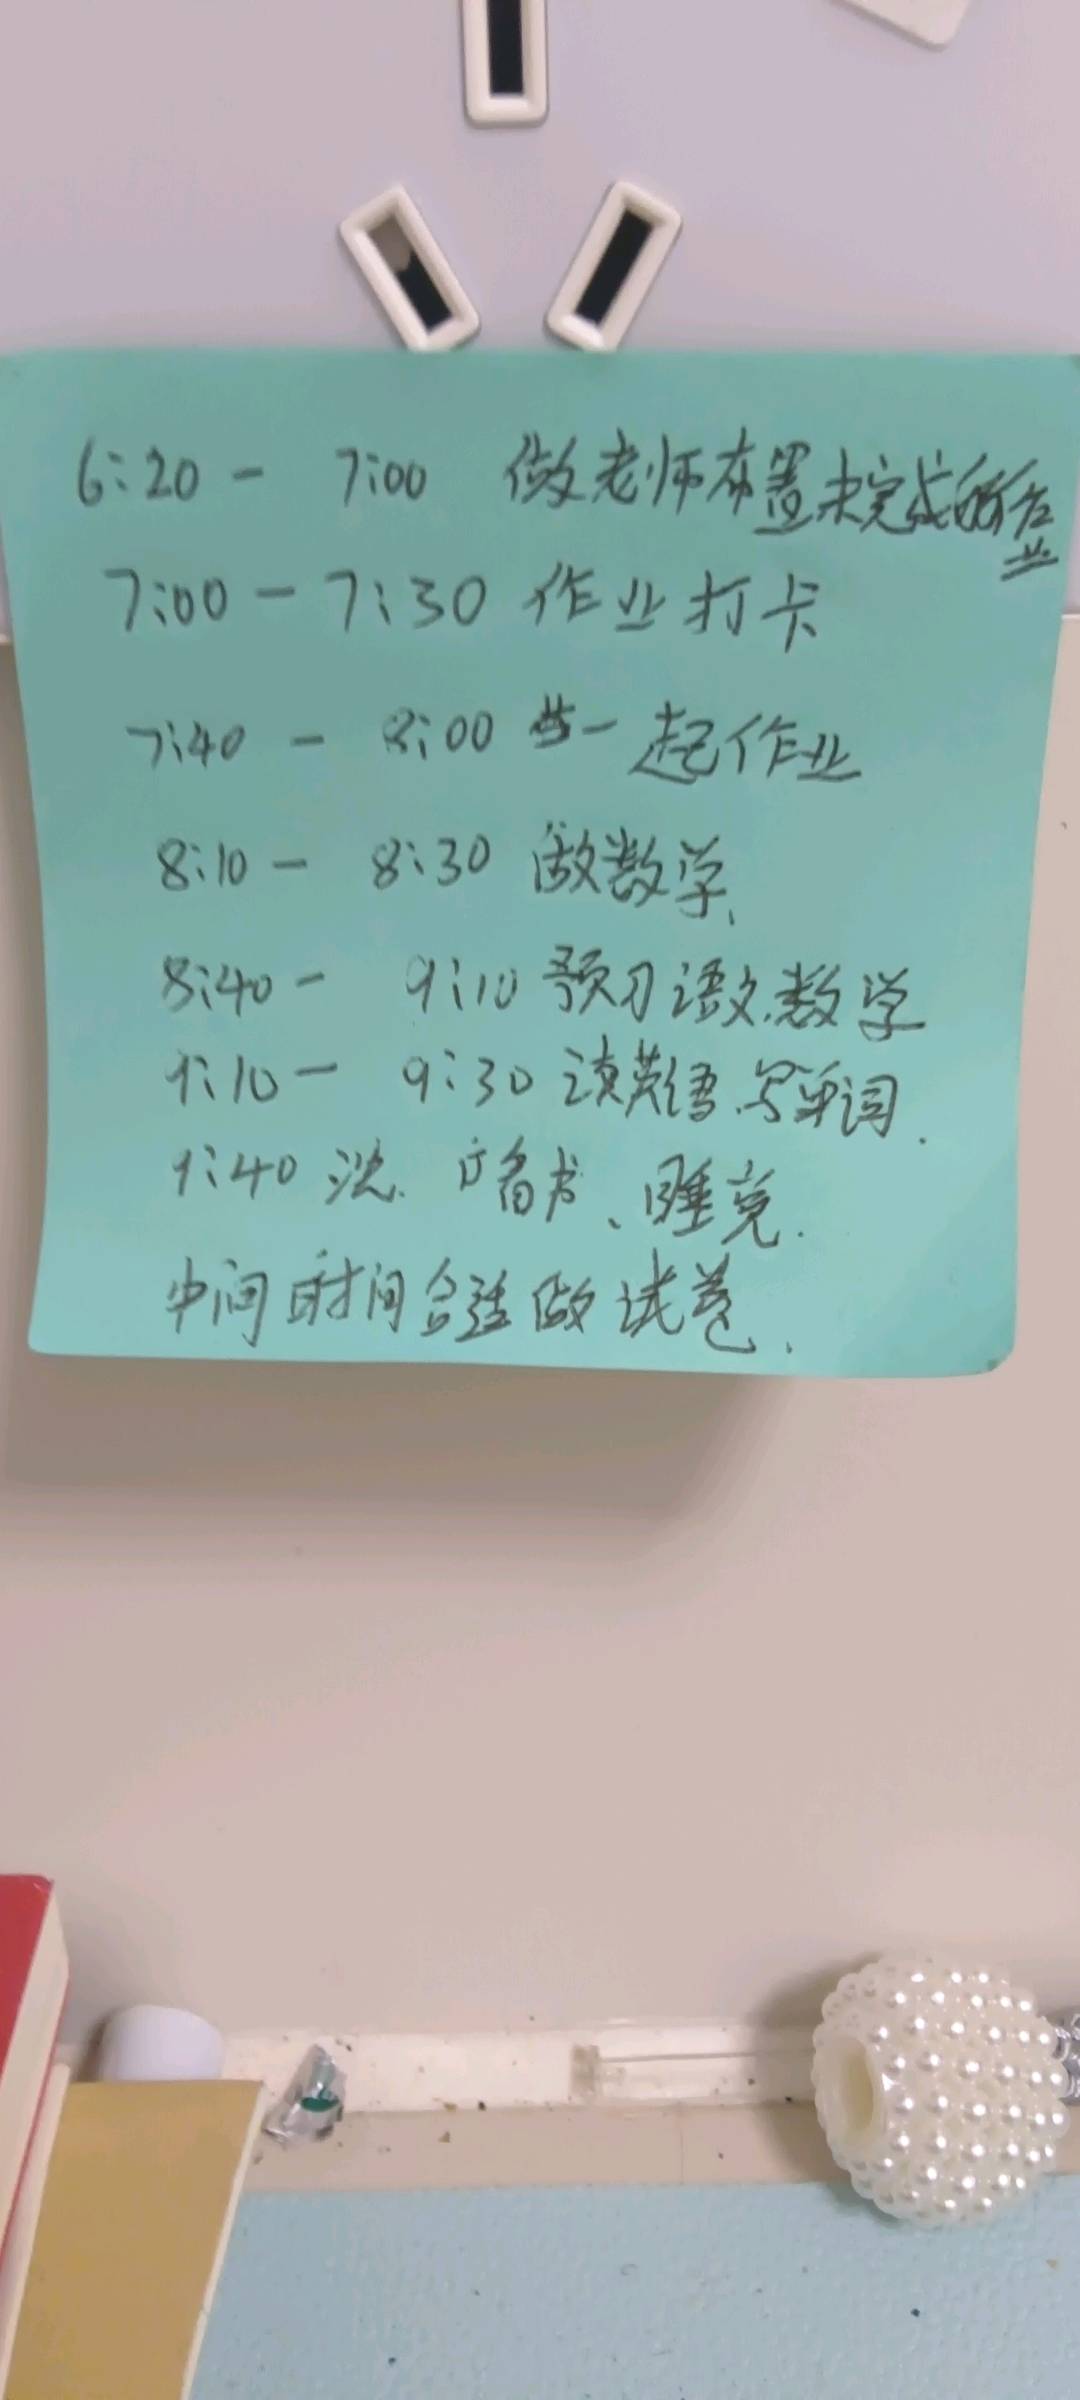 6:20 - 7:00 做老师布置未完成的作业
7:00 - 7:30 作业打卡
7:40 - 8:00 一起作业
8:10 - 8:30 做数学、
8:40 - 9:10 预习语文、数学
9:10 - 9:30 读英语、写单词.
9:40 洗、看书、睡觉.
中间时间合适做试卷.